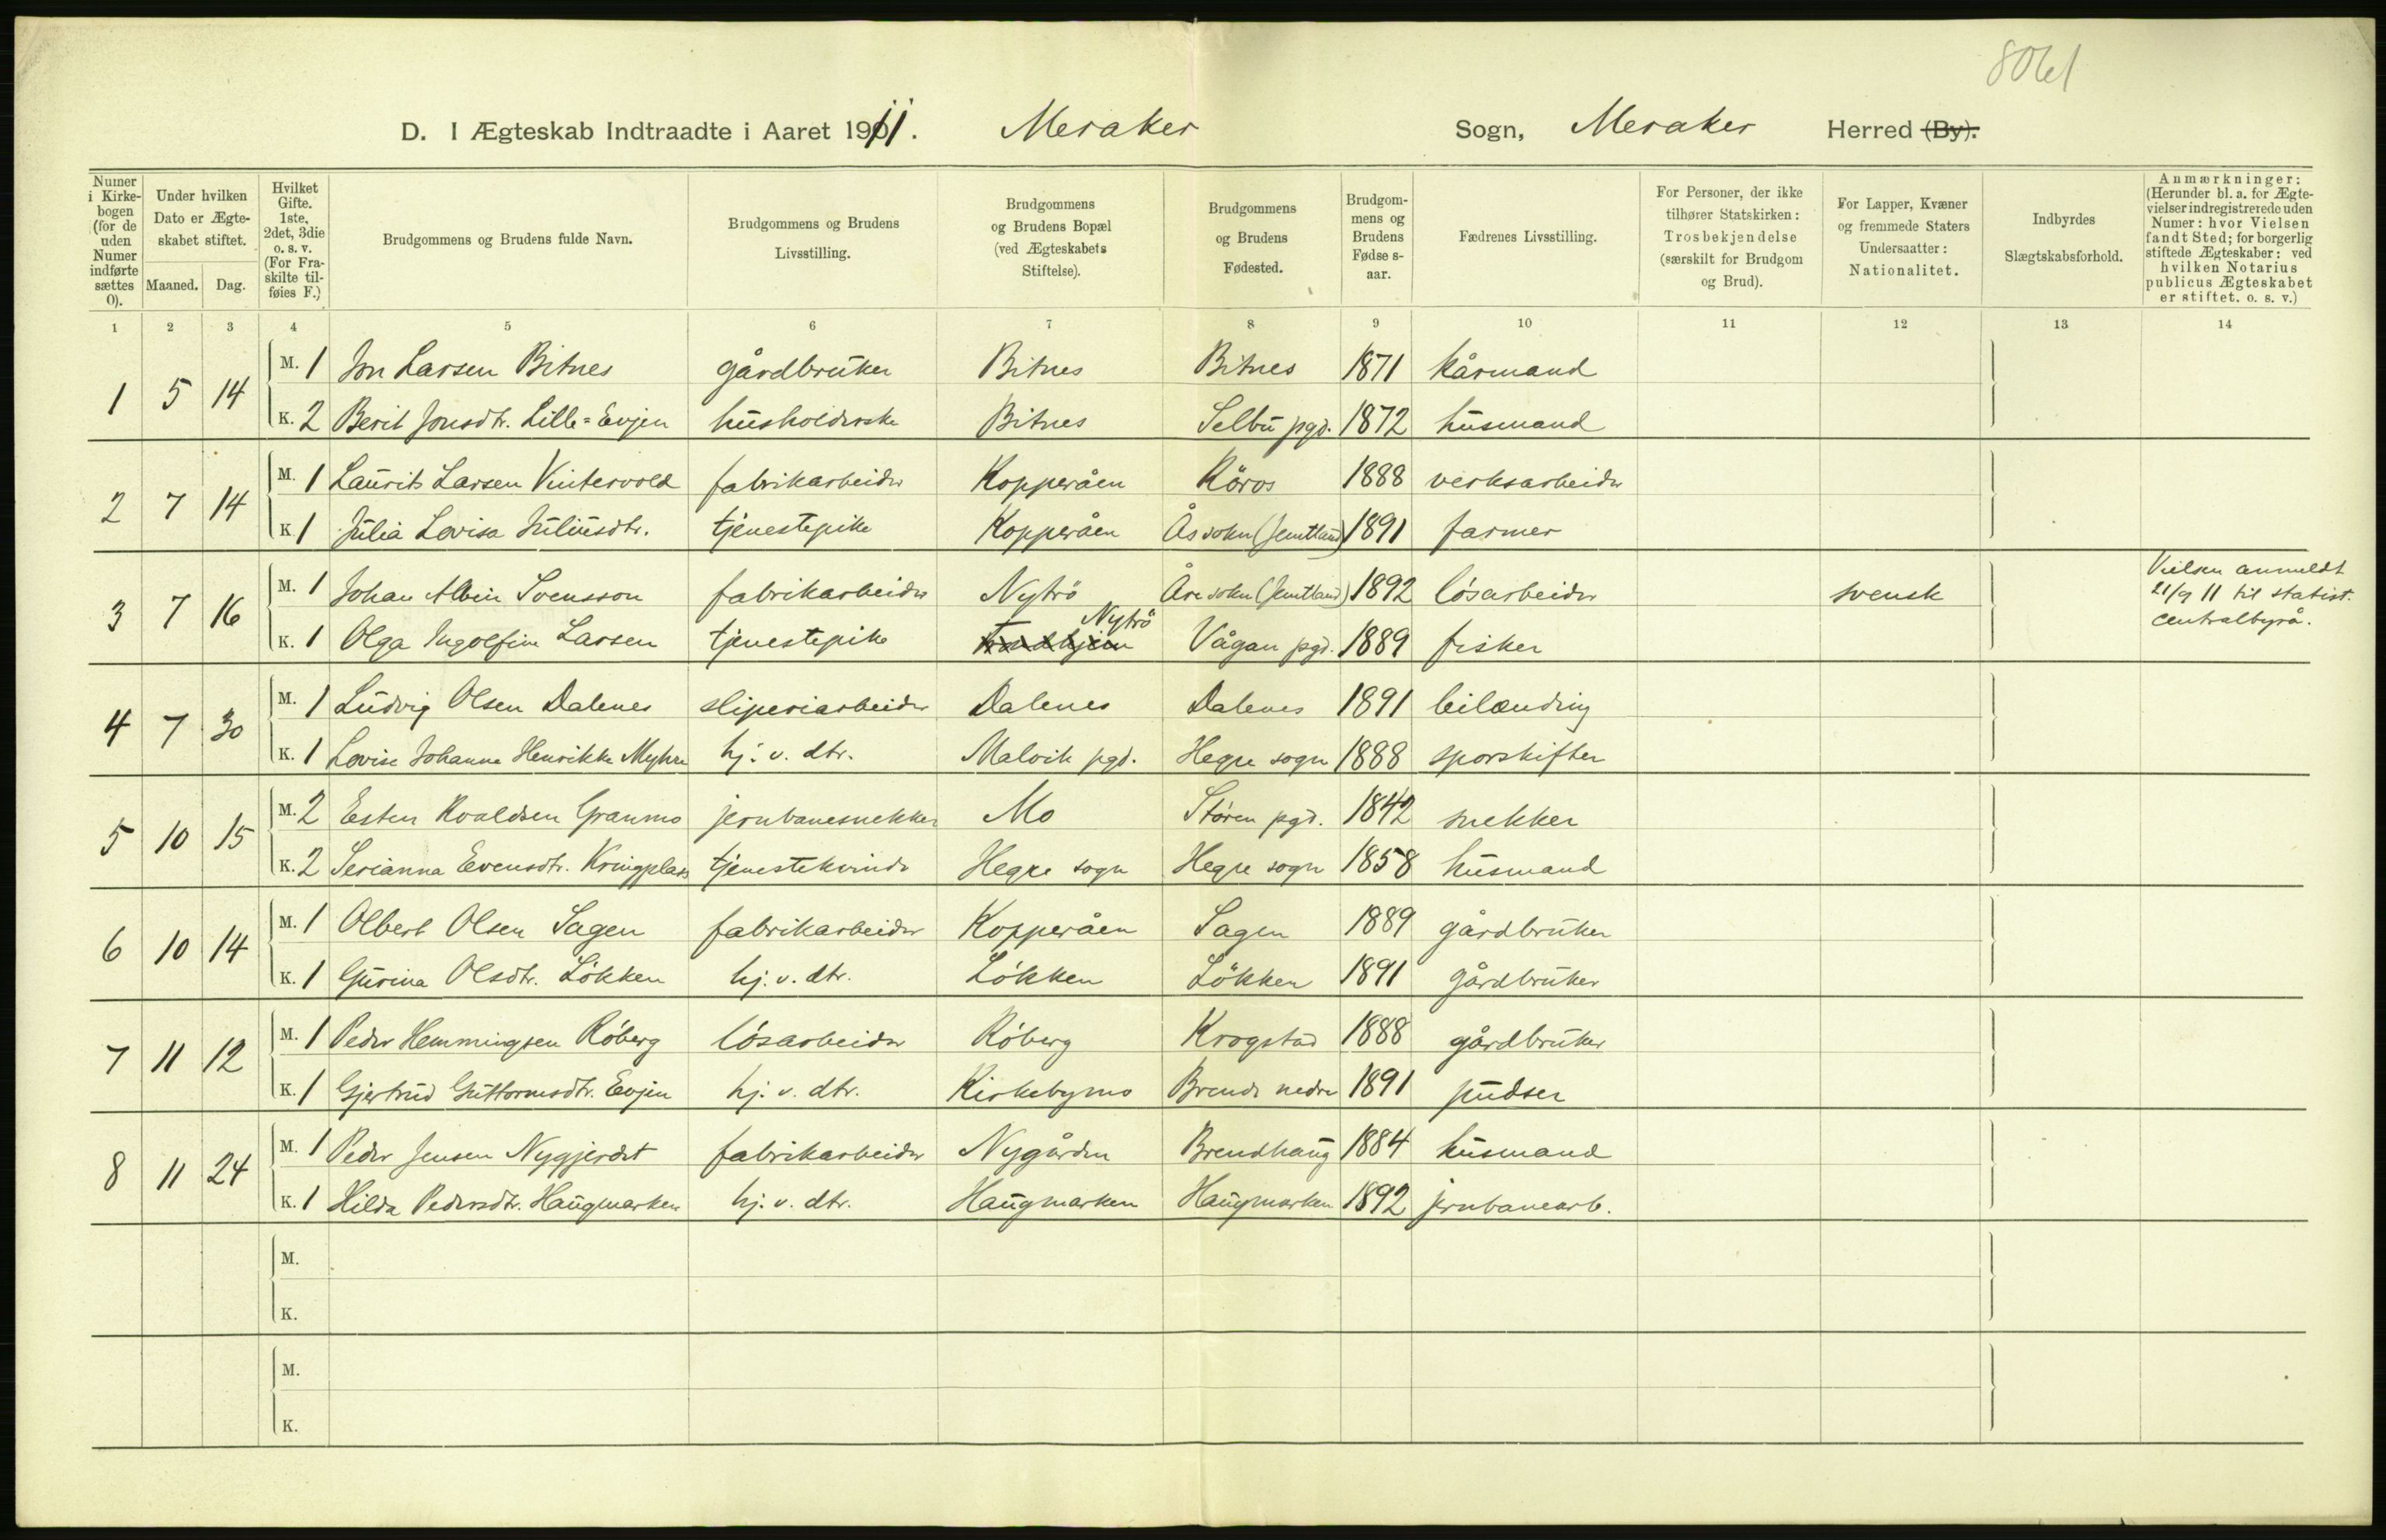 8061
D. I Ægteskab Indtraadte i Aaret 1911. Meraker Sogn, Meraker Herred (By).
Numer i Kirkebogen (for de uden Numer indførte sættes 0).
Under hvilken Dato er Ægteskabet stiftet.
Maaned. Dag.
Hvilket Gifte. 1ste, 2det, 3die o. s. v. (For Fraskilte tilføies F.)
Brudgommens og Brudens fulde Navn.
Brudgommens og Brudens Livsstilling.
Brudgommens og Brudens Bopæl (ved Ægteskabets Stiftelse).
Brudgommens og Brudens Fødested.
Brudgommens og Brudens Fødsesaar.
Fædrenes Livsstilling.
For Personer, der ikke tilhører Statskirken: Trosbekjendelse (særskilt for Brudgom og Brud).
For Lapper, Kvæner og fremmede Staters Undersaatter: Nationalitet.
Indbyrdes Slægtskabsforhold.
Anmærkninger: (Herunder bl. a. for Ægtevielser indregistrerede uden Numer: hvor Vielsen fandt Sted; for borgerlig stiftede Ægteskaber: ved hvilken Notarius publicus Ægteskabet er stiftet. o. s. v.)
1 2 3 4 5 6 7 8 9 10 11 12 13 14
1 5 14 M. 1 Jon Larsen Bitnes gårdbruker Bitnes Bitnes 1871 kårmand
K. 2 Berit Jonsdtr. Lille=Evjen husholderske Bitnes Selbu pgd. 1872 husmand
2 7 14 M. 1 Laurits Larsen Vintervold fabrikarbeider Kopperåen Röros 1888 verksarbeider
K 1 Julia Lovisa Juliusdtr. tjenestepike Kopperåen Ås sokn (Jemtland) 1891 farmer
3 7 16 M. 1 Johan Albin Svensson fabrikarbeider Nytrö Åre sokn (Jemtland) 1892 lösarbeider svensk Vielsen anmeldt 21/9 11 til statist. centralbyrå.
K. 1 Olga Ingolfine Larsen tjenestepike Trondhjem Nytrö Vågan pgd. 1889 fisker
4 7 30 M. 1 Ludvig Olsen Dalenes sliperiarbeider Dalenes Dalenes 1891 leilænding
K. 1 Lovise Johanna Henrikke Myhre hj. v. dtr. Malvik pgd. Hegre sogn 1888 sporskifter
5 10 15 M. 2 Esten Roaldsen Granmo jernbanesnekker Mo Stören pgd. 1842 snekker
K. 2 Serianna Evensdtr. Kringplass tjenestekvinde Hegre sogn Hegre sogn 1858 husmand
6 10 14 M. 1 Olbert Olsen Sagen fabrikarbeider Kopperåen Sagen 1889 gårdbruker
K. 1 Gurina Olsdtr. Lökken hj. v. dtr. Lökken Lökken 1891 gårdbruker
7 11 12 M. 1 Peder Hemmingsen Röberg lösarbeider Röberg Krogstad 1888 gårdbruker
K. 1 Gjertrud Guttormsdtr. Evjen hj. v. dtr. Kirkebymo Brende nedre 1891 pudser
8 11 24 M. 1 Peder Jensen Nygjerdet fabrikarbeider Nygården Brendhaug 1884 husmand
K. 1 Hilda Pedersdtr. Haugmarken hj. v. dtr. Haugmarken Haugmarken 1892 jernbanearb.
M.
K.
M.
K.